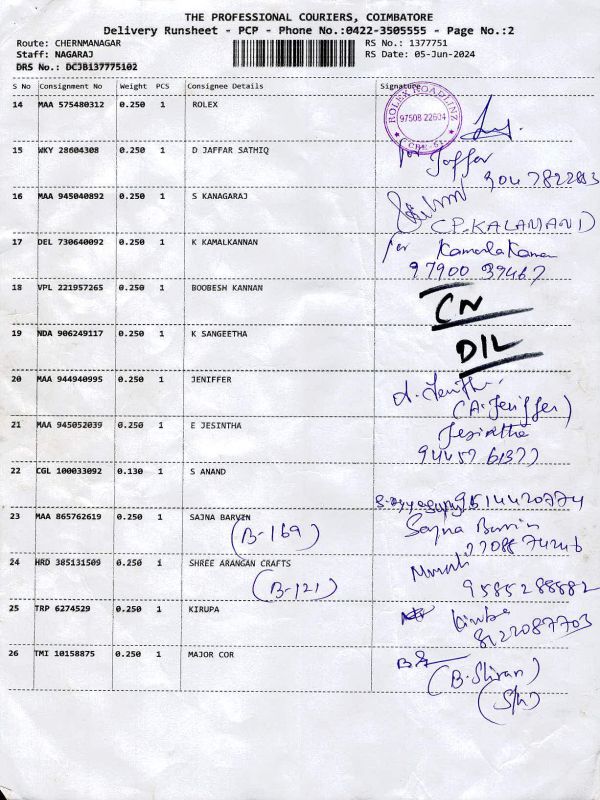 THE PROFESSIONAL COURIERS, COIMBATORE
Delivery Runsheet - PCP - Phone No.:0422-3505555 - Page No.:2
Route: CHERNMANAGAR RS No.: 1377751
Staff: NAGARAJ RS Date: 05-Jun-2024
DRS No.: DCJB137775102
S No Consignment No Weight PCS Consignee Details Signature
14 MAA 575480312 0.250 1 ROLEX
ROLEX ROADLINZ
97508 22604
CBE-61
15 WKY 28604308 0.250 1 D JAFFAR SATHIQ
Joffer
16 MAA 945040892 0.250 1 S KANAGARAJ
(P.KALAMANI)
17 DEL 730640092 0.250 1 K KAMALKANNAN
for Kamala Kannan
97900 39467
18 VPL 221957265 0.250 1 BOOBESH KANNAN
CN
19 NDA 906249117 0.250 1 K SANGEETHA
D/L
20 MAA 944940995 0.250 1 JENIFFER
(A.Jeniffer)
21 MAA 945052039 0.250 1 E JESINTHA
Jesintha
94457 61377
22 CGL 100033092 0.130 1 S ANAND
9514420774
23 MAA 865762619 0.250 1 SAJNA BARVIN
(B-169)
Sajna Barvin
24 HRD 385131509 0.250 1 SHREE ARANGAN CRAFTS
(B-121)
9585288882
25 TRP 6274529 0.250 1 KIRUPA
8122087703
26 TMI 10158875 0.250 1 MAJOR COR
(B.Shivan)